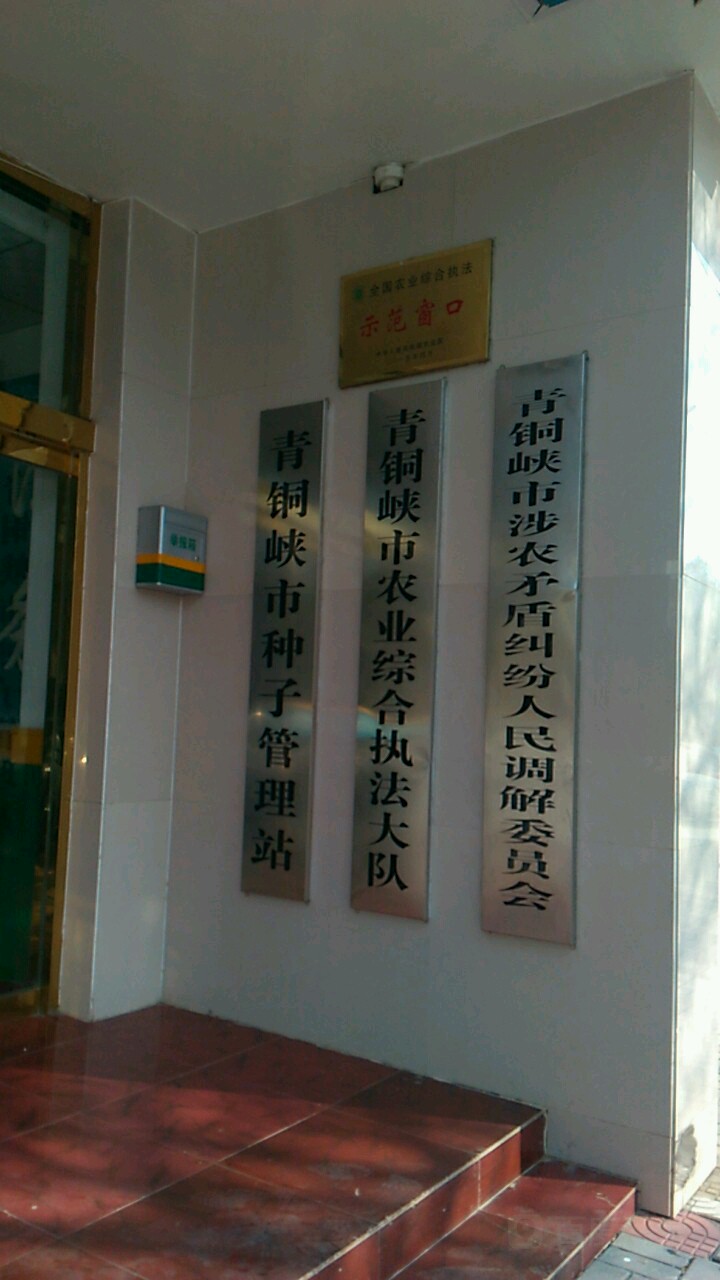 全国农业综合执法
示范窗口
青铜峡市种子管理站
青铜峡市农业综合执法大队
青铜峡市涉农矛盾纠纷人民调解委员会
举报箱